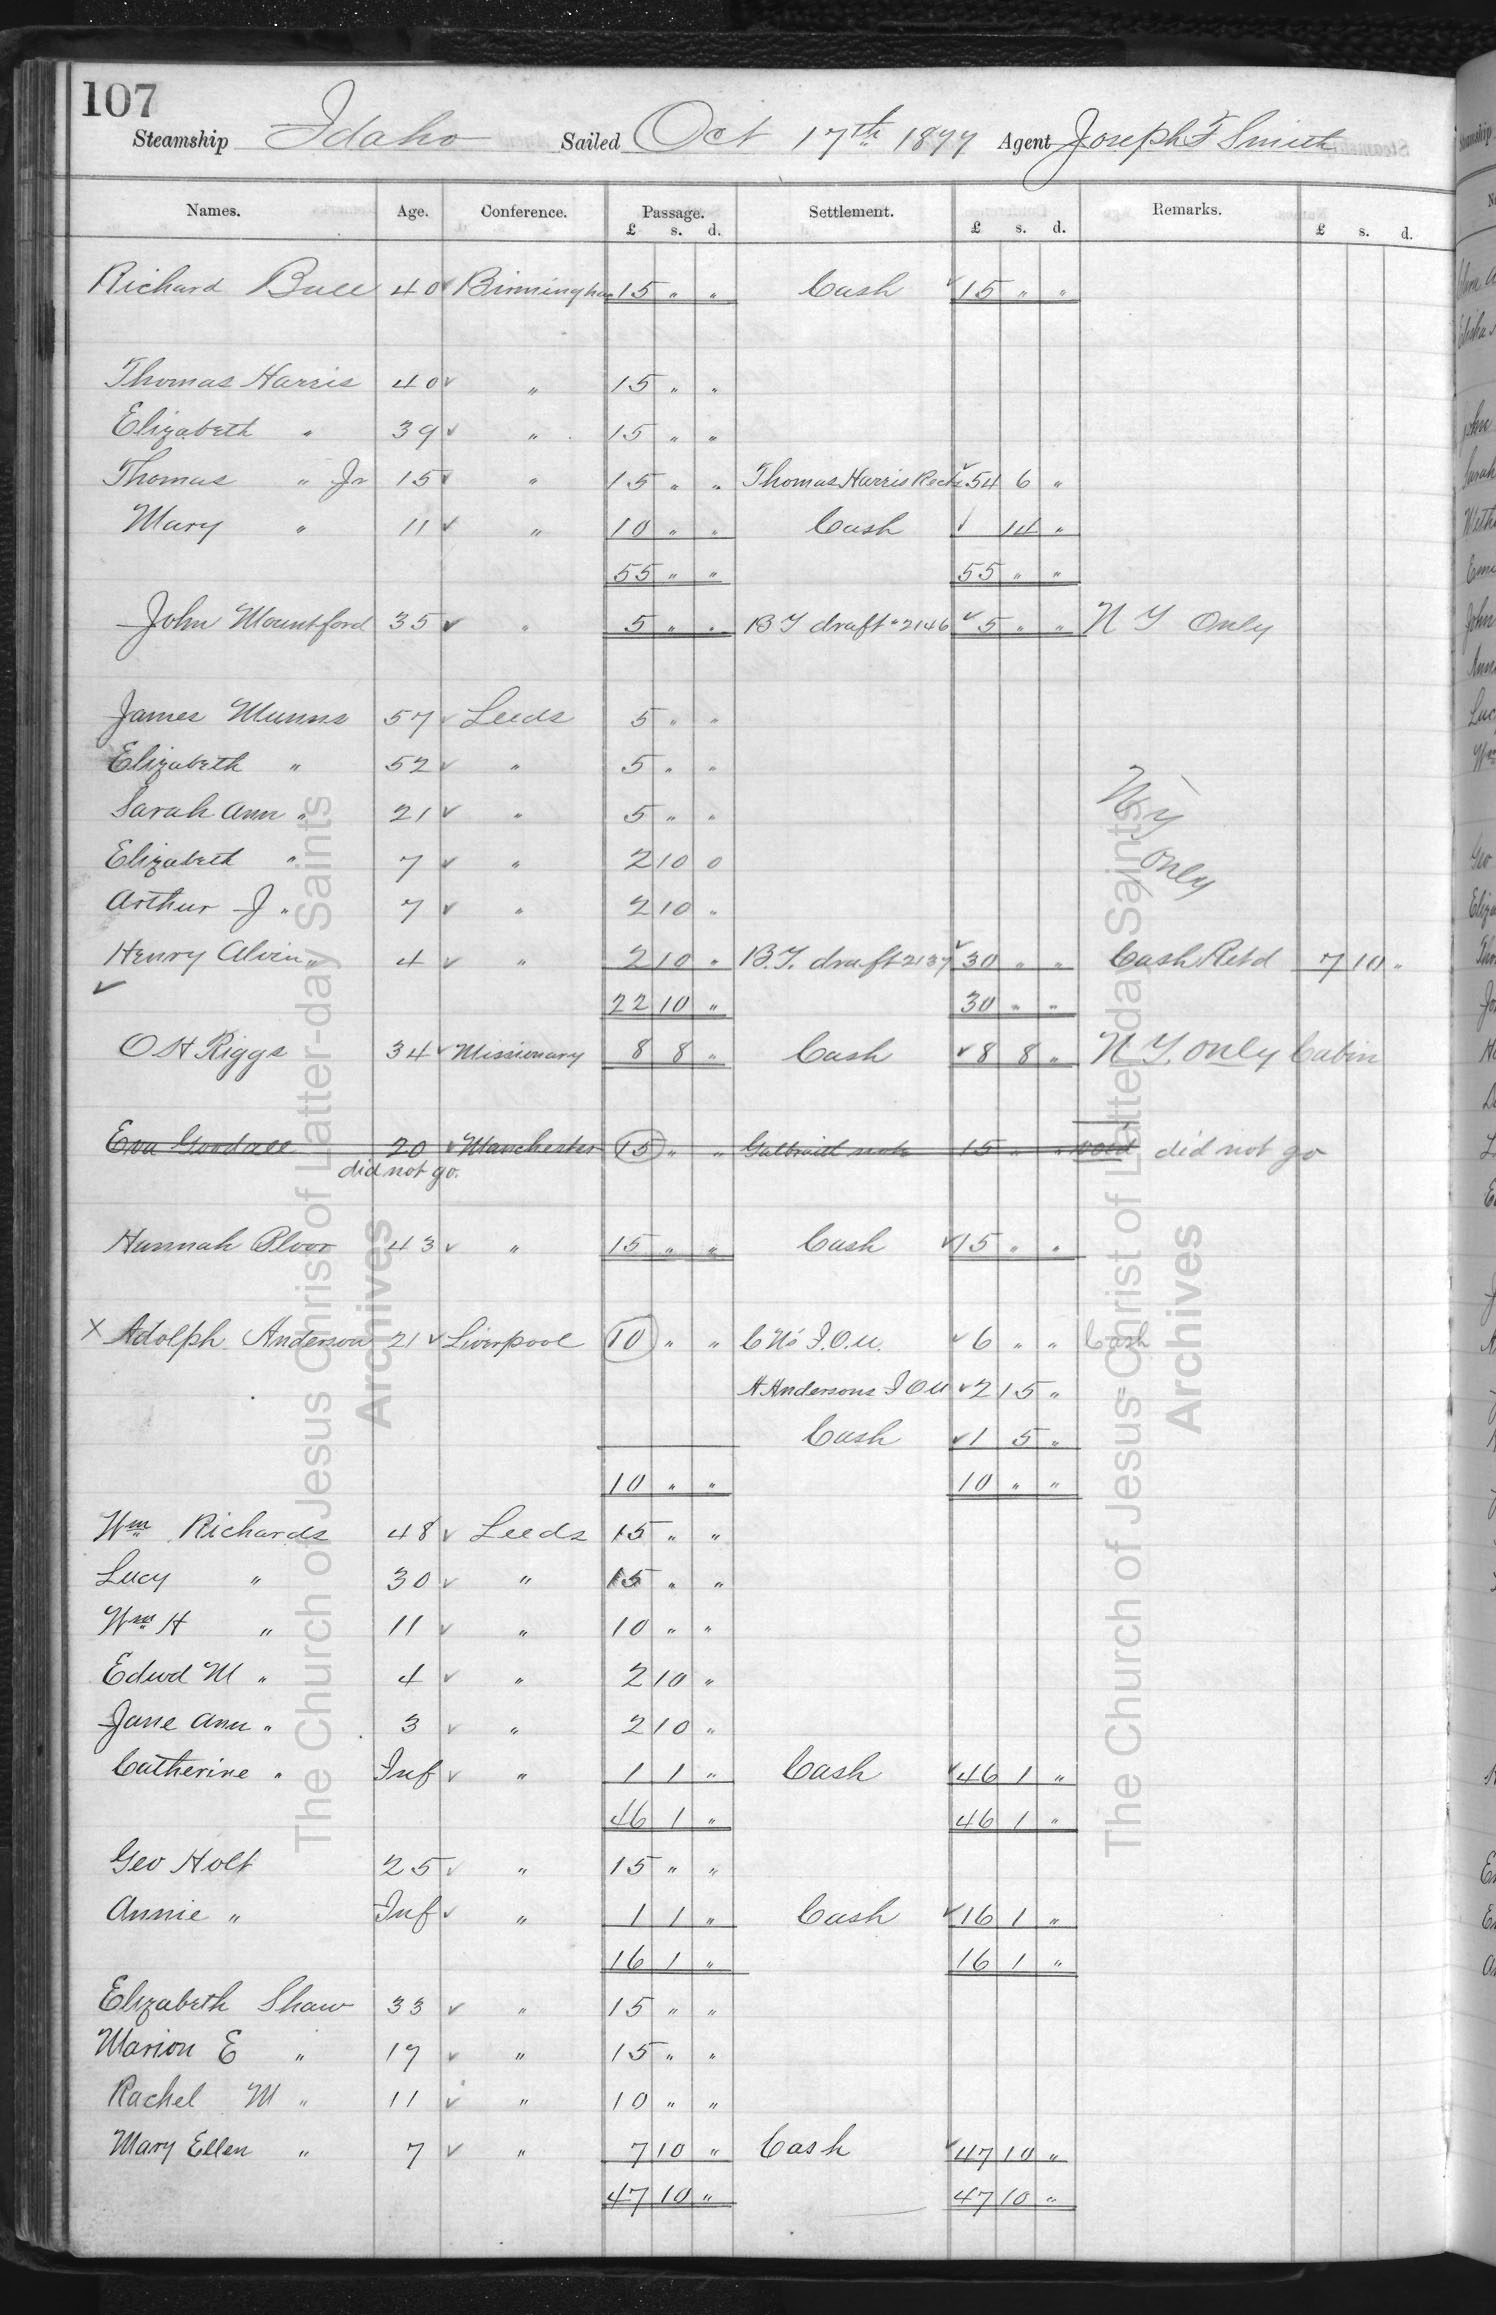 107
Steamship Idaho Sailed Oct 17th 1877 Agent Joseph F Smith
Names. Age. Conference. Passage. Settlement. Remarks.
£ s. d. £ s. d. £ s. d.
Richard Bull 40 ✓ Birmingham 15 " " Cash ✓ 15 " "
Thomas Harris 40 ✓ " 15 " "
Elizabeth " 39 ✓ " 15 " "
Thomas " Jr 15 ✓ " 15 " " Thomas Harris Rects ✓ 54 6 "
Mary " 11 ✓ " 10 " " Cash ✓ 14 "
55 " " 55 " "
John Mountford 35 ✓ " 5 " " B Y draft " 2146 ✓ 5 " " N Y Only
James Munns 57 ✓ Leeds 5 " "
Elizabeth " 52 ✓ " 5 " "
Sarah Ann " 21 ✓ " 5 " "
Elizabeth " 7 ✓ " 2 10 0
Arthur J. " 7 ✓ " 2 10 "
N.Y only
Henry Alvin " 4 ✓ " 2 10 " B.Y. draft 2137 ✓ 30 " " Cash Retd 7 10 "
✓ 22 10 " 30 " "
O H Riggs 34 ✓ Missionary 8 8 " Cash ✓ 8 8 " N Y. only Cabin
Eva Goodall 20 ✓ Manchester 15 " " Galbraith note 15 " " void did not go
did not go.
Hannah Ploor 43 ✓ " 15 " " Cash ✓ 15 " "
X Adolph Anderson 21 ✓ Liverpool 10 " " C N's I.O.U. ✓ 6 " " Cash
A Andersons I O U ✓ 2 15 "
Cash ✓ 1 5 "
10 " " 10 " "
Wm Richards 48 ✓ Leeds 15 " "
Lucy " 30 ✓ " 15 " "
Wm H " 11 ✓ " 10 " "
Edwd M " 4 ✓ " 2 10 "
Jane Ann " 3 ✓ " 2 10 "
Catherine " Inf ✓ " 1 1 " Cash ✓ 46 1 "
46 1 " 46 1 "
Geo Holt 25 ✓ " 15 " "
Annie " Inf ✓ " 1 1 " Cash ✓ 16 1 "
16 1 " 16 1 "
Elizabeth Shaw 33 ✓ " 15 " "
Marion E " 17 ✓ " 15 " "
Rachel M " 11 ✓ " 10 " "
Mary Ellen " 7 ✓ " 7 10 " Cash ✓ 47 10 "
47 10 " 47 10 "
The Church of Jesus Christ of Latter-day Saints
Archives
The Church of Jesus Christ of Latter-day Saints
Archives